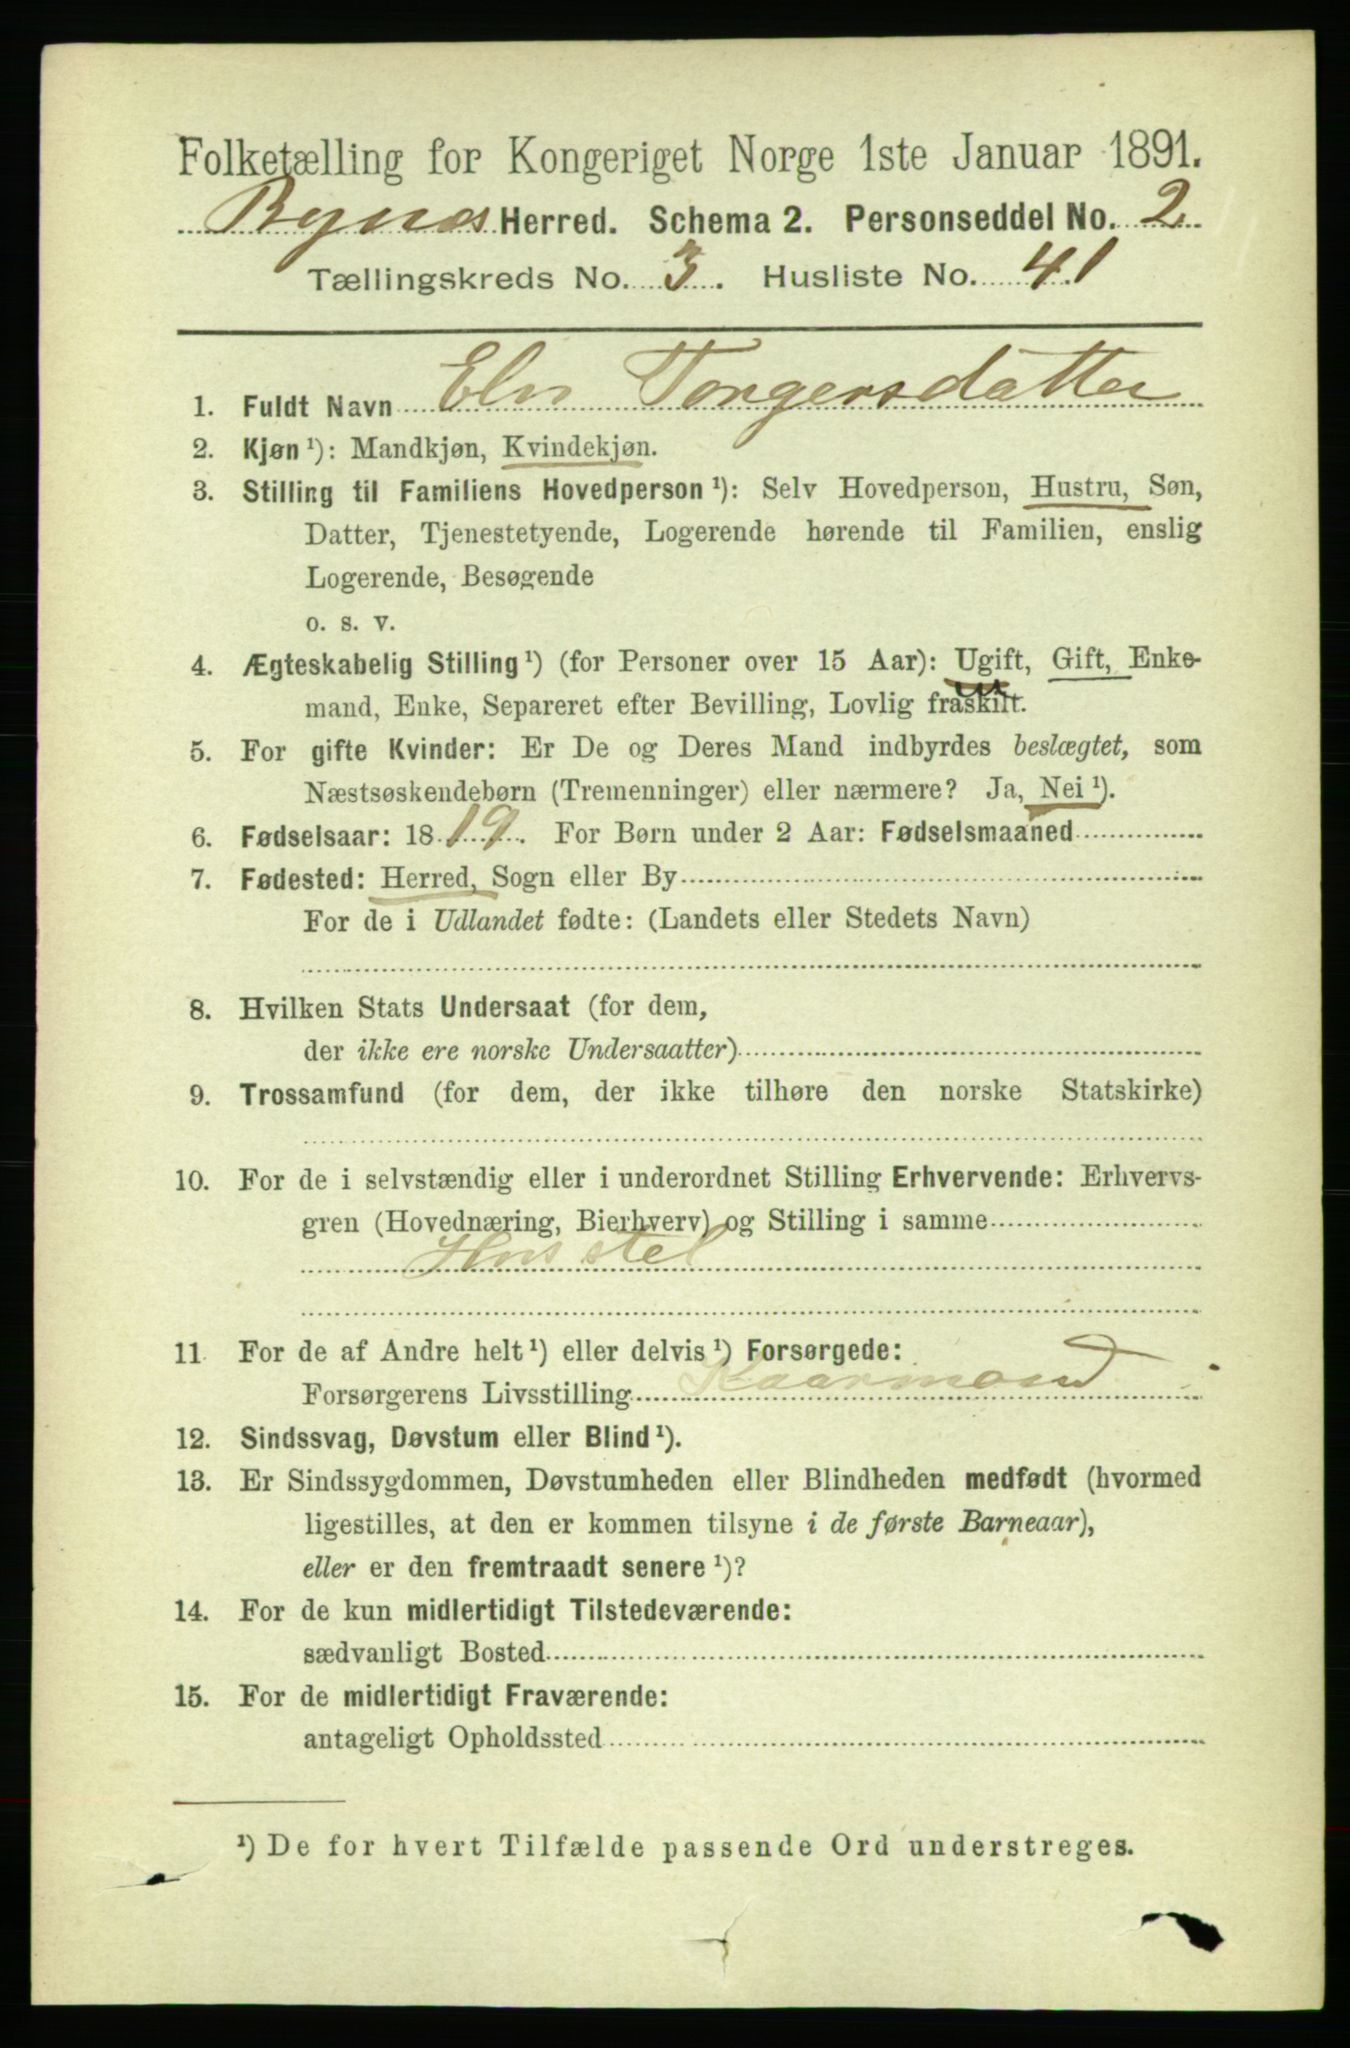 Folketælling for Kongeriget Norge 1ste Januar 1891.
Bynes Herred. Schema 2. Personseddel No. 2.
Tællingskreds No. 3. Husliste No. 41
1. Fuldt Navn Elen Torgersdatter
2. Kjøn ¹): Mandkjøn, Kvindekjøn.
3. Stilling til Familiens Hovedperson ¹): Selv Hovedperson, Hustru, Søn,
Datter, Tjenestetyende, Logerende hørende til Familien, enslig
Logerende, Besøgende
o. s. v.
4. Ægteskabelig Stilling ¹) (for Personer over 15 Aar): Ugift, Gift, Enke-
mand, Enke, Separeret efter Bevilling, Lovlig fraskilt.
5. For gifte Kvinder: Er De og Deres Mand indbyrdes beslægtet, som
Næstsøskendebørn (Tremenninger) eller nærmere? Ja, Nei ¹).
6. Fødselsaar: 1819. For Børn under 2 Aar: Fødselsmaaned
7. Fødested: Herred, Sogn eller By
For de i Udlandet fødte: (Landets eller Stedets Navn)
8. Hvilken Stats Undersaat (for dem,
der ikke ere norske Undersaatter)
9. Trossamfund (for dem, der ikke tilhøre den norske Statskirke)
10. For de i selvstændig eller i underordnet Stilling Erhvervende: Erhvervs-
gren (Hovednæring, Bierhverv) og Stilling i samme
Husstel
11. For de af Andre helt ¹) eller delvis ¹) Forsørgede:
Forsørgerens Livsstilling Kaarmand
12. Sindssvag, Døvstum eller Blind ¹).
13. Er Sindssygdommen, Døvstumheden eller Blindheden medfødt (hvormed
ligestilles, at den er kommen tilsyne i de første Barneaar),
eller er den fremtraadt senere ¹)?
14. For de kun midlertidigt Tilstedeværende:
sædvanligt Bosted
15. For de midlertidigt Fraværende:
antageligt Opholdssted
¹) De for hvert Tilfælde passende Ord understreges.